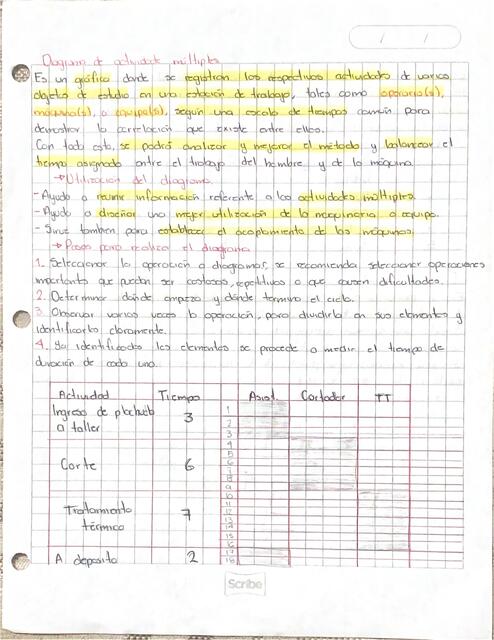 Diagrama de actividades múltiples
Es un gráfico donde se registran las respectivas actividades de varios
objetos de estudio en una estación de trabajo, tales como operario(s),
máquina(s), o equipo(s), según una escala de tiempos común para
demostrar la correlación que existe entre ellos.
Con todo esto, se podrá analizar y mejorar el método y balancear el
tiempo asignado entre el trabajo del hombre y de la máquina.
→ Utilización del diagrama
- Ayuda a reunir información referente a las actividades múltiples.
- Ayuda a diseñar una mejor utilización de la maquinaria o equipo.
- Sirve tambien para establecer el acoplamiento de las máquinas.
→ Pasos para realizar el diagrama
1. Seleccionar la operación a diagramar, se recomienda seleccionar operaciones
importantes que puedan ser costosas, repetitivas o que causen dificultades.
2. Determinar dónde empieza y dónde termina el ciclo.
3. Observar varias veces la operación, para dividirla en sus elementos y
identificarlos claramente.
4. Ya identificados los elementos se procede a medir el tiempo de
duración de cada uno.
Actividad Tiempo Asist. Cortador TT
Ingreso de
a taller 3
Corte 6
Tratamiento
térmico 7
A deposito 2
1
2
3
4
5
6
7
8
9
10
11
12
13
14
15
16
17
18
Scribe